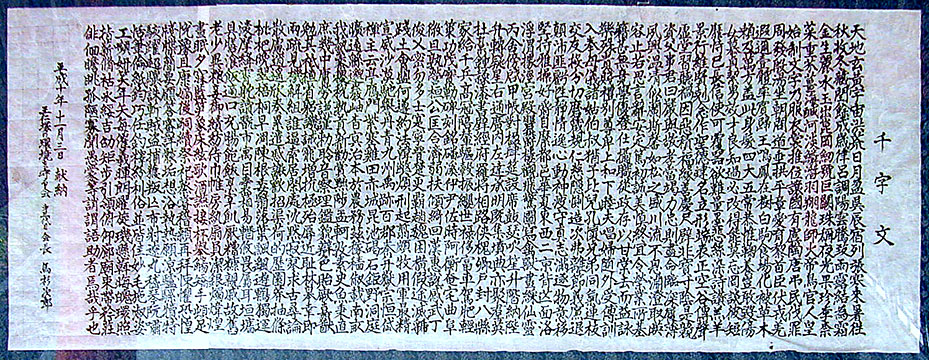 千字文
天地玄黃宇宙洪荒日月盈昃辰宿列張寒來暑往
秋收冬藏閏餘成歲律呂調陽雲騰致雨露結為霜
金生麗水玉出崑岡劍號巨闕珠稱夜光果珍李柰
菜重芥薑海鹹河淡鱗潛羽翔龍師火帝鳥官人皇
始制文字乃服衣裳推位讓國有虞陶唐弔民伐罪
周發殷湯坐朝問道垂拱平章愛育黎首臣伏戎羌
遐邇壹體率賓歸王鳴鳳在樹白駒食場化被草木
賴及萬方蓋此身髮四大五常恭惟鞠養豈敢毀傷
女慕貞絜男效才良知過必改得能莫忘罔談彼短
靡恃己長信使可覆器欲難量墨悲絲染詩讚羔羊
景行維賢剋念作聖德建名立形端表正空谷傳聲
虛堂習聽禍因惡積福緣善慶尺璧非寶寸陰是競
資父事君曰嚴與敬孝當竭力忠則盡命臨深履薄
夙興溫凊似蘭斯馨如松之盛川流不息淵澄取映
容止若思言辭安定篤初誠美慎終宜令榮業所基
籍甚無竟學優登仕攝職從政存以甘棠去而益詠
樂殊貴賤禮別尊卑上和下睦夫唱婦隨外受傅訓
入奉母儀諸姑伯叔猶子比兒孔懷兄弟同氣連枝
交友投分切磨箴規仁慈隱惻造次弗離節義廉退
顛沛匪虧性靜情逸心動神疲守真志滿逐物意移
堅持雅操好爵自縻都邑華夏東西二京背芒面洛
浮渭據涇宮殿盤鬱樓觀飛驚圖寫禽獸畫綵仙靈
丙舍傍啟甲帳對楹肆筵設席鼓瑟吹笙升階納陛
弁轉疑星右通廣內左達承明既集墳典亦聚群英
杜稿鍾隸漆書壁經府羅將相路俠槐卿戶封八縣
家給千兵高冠陪輦驅轂振纓世祿侈富車駕肥輕
策功茂實勒碑刻銘磻溪伊尹佐時阿衡奄宅曲阜
微旦孰營桓公匡合濟弱扶傾綺迴漢惠說感武丁
俊乂密勿多士寔寧晉楚更霸趙魏困橫假途滅虢
踐土會盟何遵約法韓弊煩刑起翦頗牧用軍最精
宣威沙漠馳譽丹青九州禹跡百郡秦并嶽宗恒岱
禪主云亭雁門紫塞雞田赤城昆池碣石鉅野洞庭
曠遠綿邈巖岫杳冥治本於農務茲稼穡俶載南畝
我藝黍稷稅熟貢新勸賞黜陟孟軻敦素史魚秉直
庶幾中庸勞謙謹敕聆音察理鑑貌辨色貽厥嘉猷
勉其祗植省躬譏誡寵增抗極殆辱近恥林皋幸即
兩疏見機解組誰逼索居閑處沉默寂寥求古尋論
散慮逍遙欣奏累遣慼謝歡招渠荷的歷園莽抽條
枇杷晚翠梧桐早凋陳根委翳落葉飄颻遊鵾獨運
凌摩絳霄耽讀翫市寓目囊箱易輶攸畏屬耳垣牆
具膳餐飯適口充腸飽飫烹宰飢厭糟糠親戚故舊
老少異糧妾御績紡侍巾帷房紈扇圓潔銀燭煒煌
晝眠夕寐藍筍象床絃歌酒讌接杯舉觴矯手頓足
悅豫且康嫡後嗣續祭祀蒸嘗稽顙再拜悚懼恐惶
牋牒簡要顧答審詳骸垢想浴執熱願涼驢騾犢特
駭躍超驤誅斬賊盜捕獲叛亡布射遼丸嵇琴阮嘯
恬筆倫紙鈞巧任釣釋紛利俗並皆佳妙毛施淑姿
工顰妍笑年矢每催曦暉朗曜璇璣懸斡晦魄環照
指薪修祜永綏吉劭矩步引領俯仰廊廟束帶矜莊
俳佪瞻眺孤陋寡聞愚蒙等誚謂語助者焉哉乎也
平成十年十一月三日献納